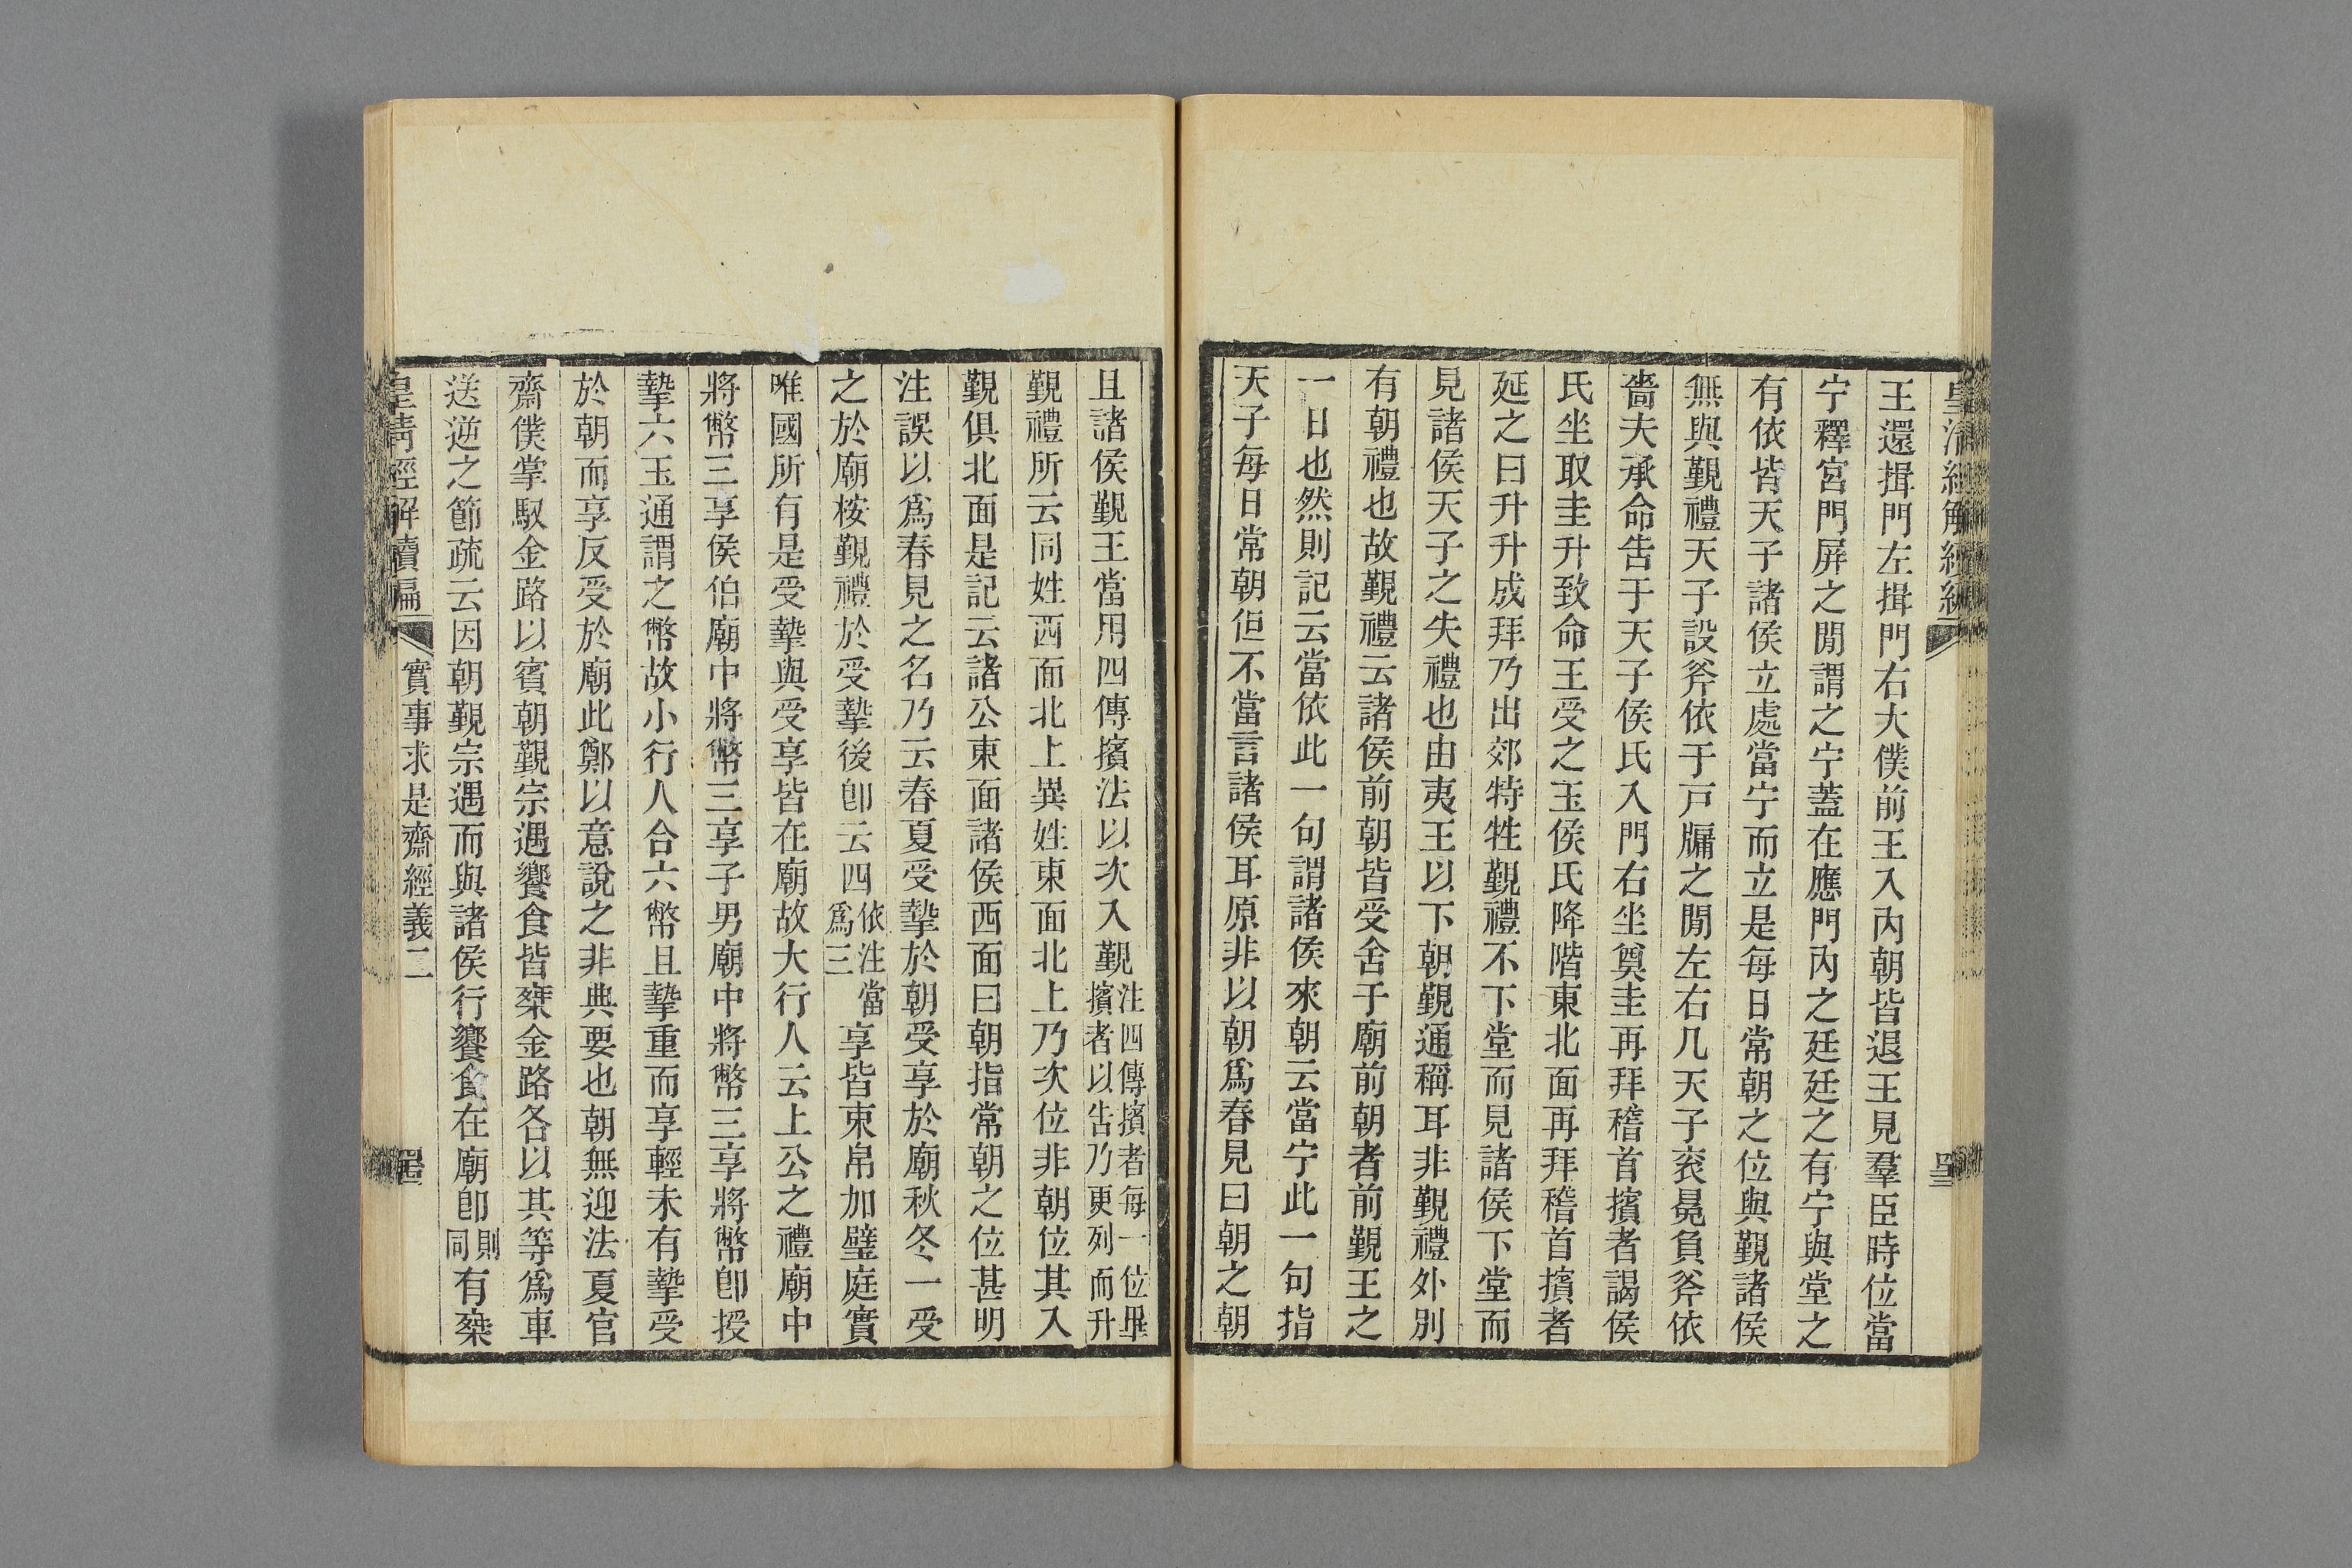 王還揖門左揖門右大僕前王入內朝皆退王見羣臣時位當
宁釋宮門屏之閒謂之宁蓋在應門內之廷廷之有宁與堂之
有依皆天子諸侯立處當宁而立是每日常朝之位與覲諸侯
無與覲禮天子設斧依于戸牖之閒左右几天子衮冕負斧依
嗇夫承命告于天子侯氏入門右坐奠圭再拜稽首擯者謁侯
氏坐取圭升致命王受之玉侯氏降階東北面再拜稽首擯者
延之曰升升成拜乃出郊特牲覲禮不下堂而見諸侯下堂而
見諸侯天子之失禮也由夷王以下朝覲通稱耳非覲禮外別
有朝禮也故覲禮云諸侯前朝皆受舍于廟前朝者前覲王之
一日也然則記云當依此一句謂諸侯來朝云當宁此一句指
天子每日常朝但不當言諸侯耳原非以朝爲春見曰朝之朝
且諸侯覲王當用四傳擯法以次入覲注四傳擯者每一位畢擯者以告乃更列而升
覲禮所云同姓西面北上異姓東面北上乃次位非朝位其入
覲俱北面是記云諸公東面諸侯西面曰朝指常朝之位甚明
注誤以爲春見之名乃云春夏受摯於朝受享於廟秋冬一受
之於廟桉覲禮於受摯後卽云四依注當爲三享皆束帛加璧庭實
唯國所有是受摯與受享皆在廟故大行人云上公之禮廟中
將幣三享侯伯廟中將幣三享子男廟中將幣三享將幣卽授
摯六玉通謂之幣故小行人合六幣且摯重而享輕未有摯受
於朝而享反受於廟此鄭以意說之非典要也朝無迎法夏官
齋僕掌馭金路以賓朝覲宗遇饗食皆椉金路各以其等爲車
送逆之節疏云因朝覲宗遇而與諸侯行饗食在廟卽則同有椉
皇清經解續編
實事求是齋經義二